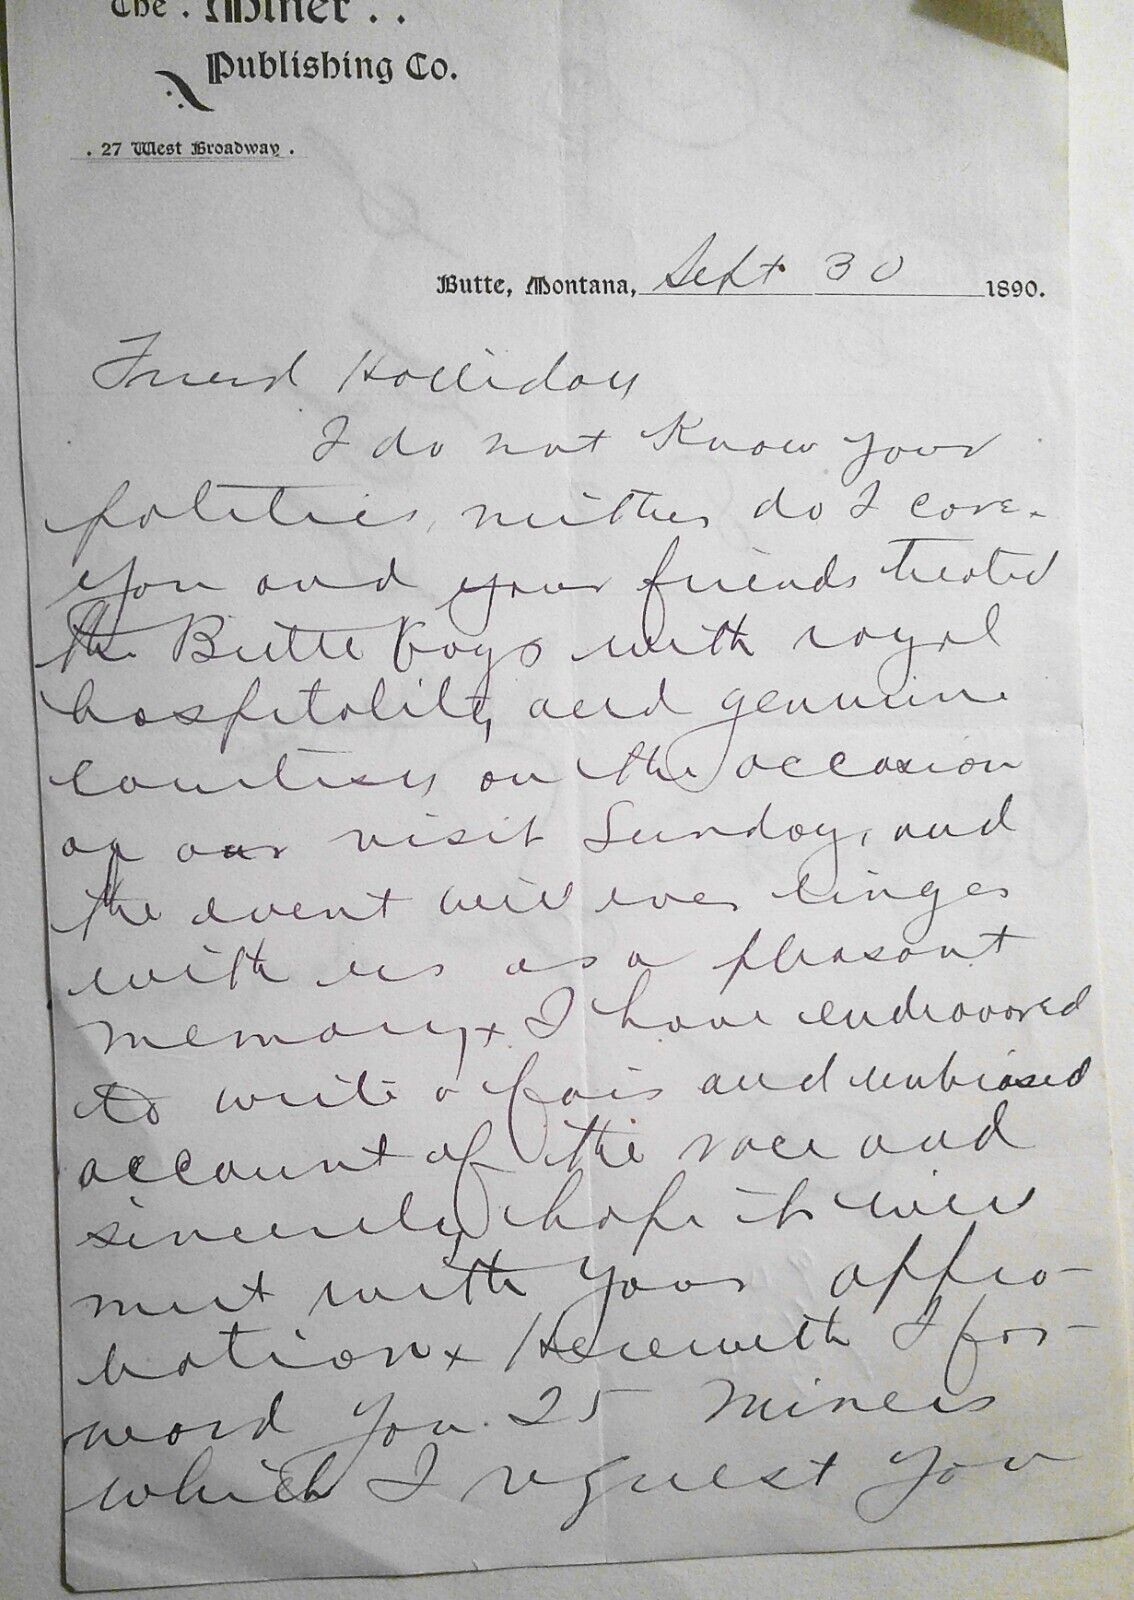 The . Miner . .
Publishing Co.
. 27 West Broadway .
Butte, Montana, Sept. 30 1890.
Friend Holliday
I do not Know your
politics, neither do I care.
You and your friends treated
the Butte boys with royal
hospitality and genuine
courtesy on the occasion
of our visit Sunday, and
the event will ever linger
with us as a pleasant
memory x I have endeavored
to write a fair and unbiased
account of the race and
sincerely hope it will
meet with your appro-
bation x Herewith I for-
ward you 25 Miners
which I request you